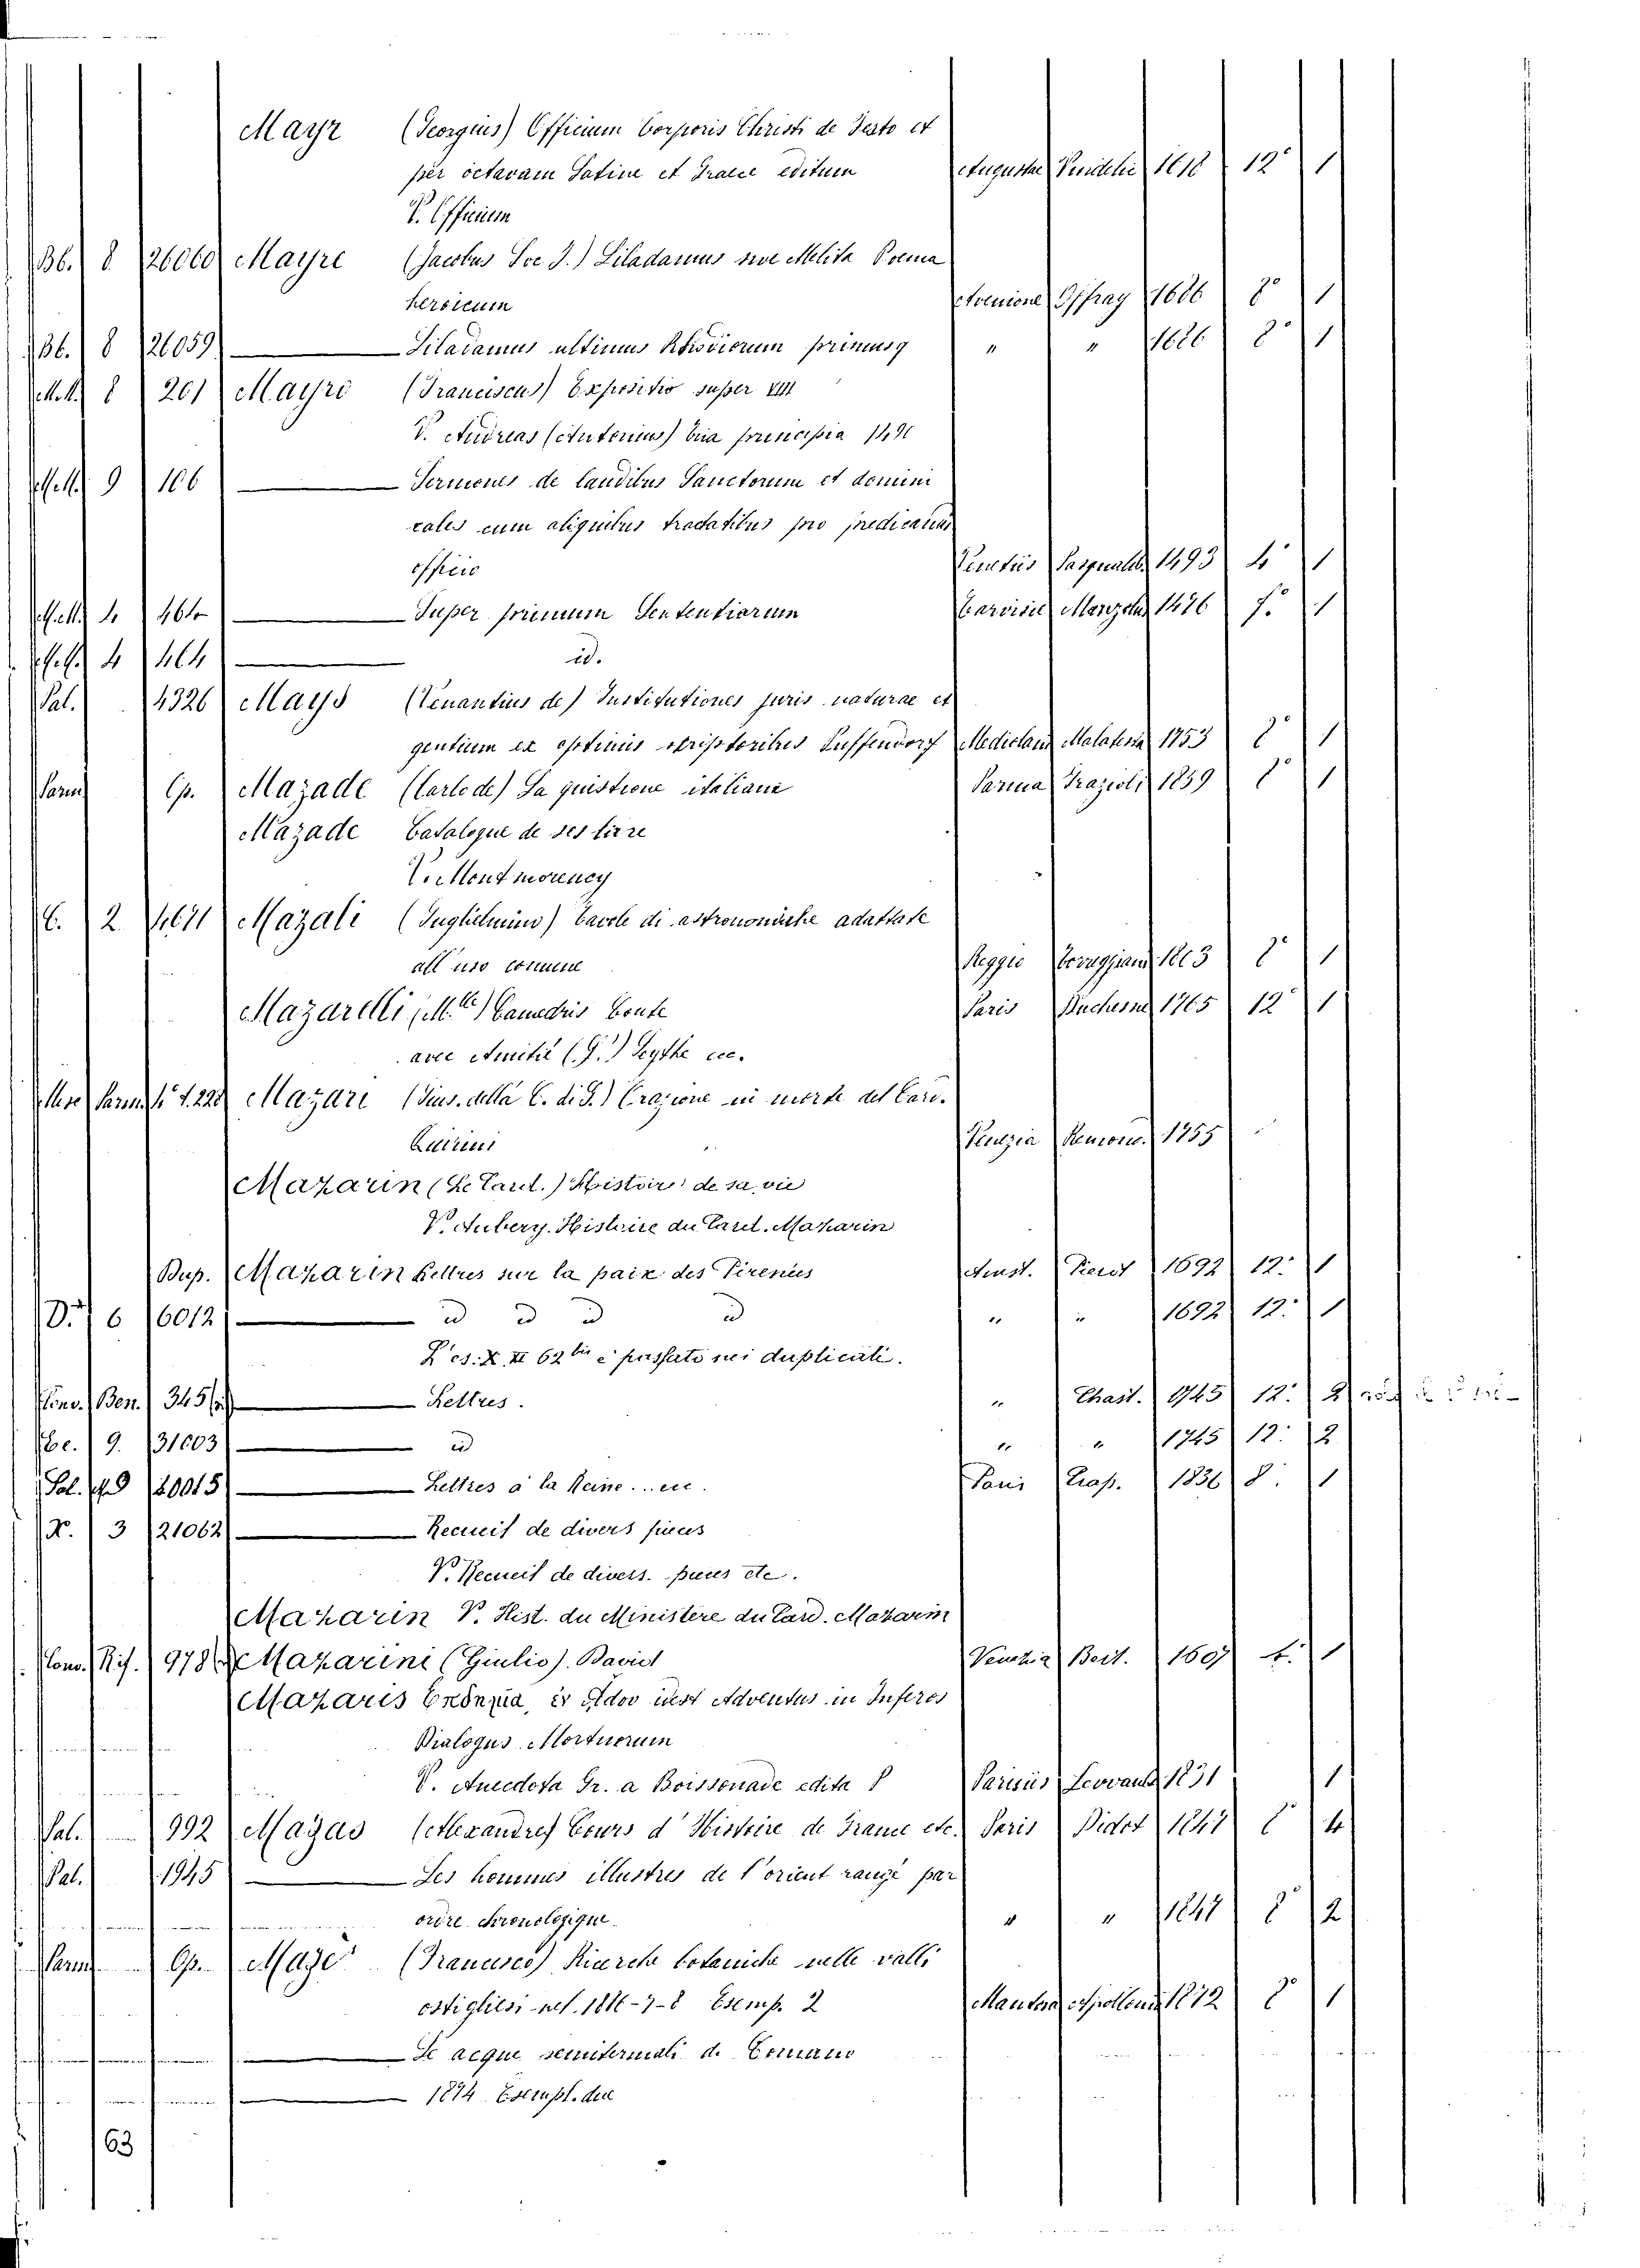 Mayr (Georgius) Officium Corporis Christi de Festo et
per octavam Latine et Graece editum Augustae Vindelic 1618 12° 1
V. Officium
Bb. 8 26060 Mayre (Jacobus Soc J.) Liladamus sive Melita Poema
heroicum Avenione Offray 1686 8° 1
Bb. 8 26059 Liladamus ultimus Rhodiorum primusq " " 1686 8° 1
201 Mayro (Franciscus) Expositio super VIII
V. Andreas (Antonius) 
9 106 Sermones de laudibus Sanctorum et domini
cales cum aliquibus tractatibus pro predicandi
officio Venetiis 1493 4° 1
4 464 Super primum Sententiarum Tarvisii Manzolo 1476 f. 1
4 464 id.
Pal. 4326 Mays (Venantius de) Institutiones juris naturae et
gentium ex optimis scriptoribus Puffendorf Mediolani Malatesta 1753 8° 1
Parm Op. Mazade (Carlo de) La quistione italiana Parma Grazioli 1859 8° 1
Mazade Catalogue de ses livre
V. Montmorency
C. 2 Mazali (Guglielmino) Tavole di astronomiche adattate
all uso comune Reggio Torreggiani 1803 8° 1
Mazarelli (M.lle) Camedris Conte Paris Duchesne 1765 12° 1
avec Amitié (L') Scythe ecc.
Mazari (Gius. della C. di G.) Orazione in morte del Card.
Quirini Venezia Remond. 1755
Mazarin (Le Card.) Histoire de sa vie
V. Aubery. Histoire du Card. Mazarin
Bup. Mazarin Lettres sur la paix des Pirenées Amst. Pierot 1692 12° 1
D.° 6 6012 id id id id " " 1692 12° 1
L'es. X. II 62 bis è passato nei duplicati.
Ben. 345 Lettres. " Chast. 1745 12° 2
9. 31003 id " " 1745 12° 2
Pal. 20015 Lettres à la Reine ... ecc. Paris Crap. 1836 8° 1
X. 3 21062 Recueil de divers pieces
V. Recueil de divers. pieces etc.
Mazarin V. Hist. du Ministère du Card. Mazarin
Rif. 978 Mazarini (Giulio). David Venezia Bert. 1607 4° 1
Mazaris Επιδημια, εν Αδου inest Adventus in Inferos
Dialogus Mortuorum
V. Anecdota Gr. a Boissonade edita Parisiis 1831 1
Pal. 992 Mazas (Alexandre) Cours d'Histoire de France etc. Paris Didot 1847 8° 4
Pal. 1945 Les hommes illustres de l'orient rangé par
ordre chronologique " " 1847 8° 2
Parm Op. Maze (Francesco) Ricerche botaniche nelle valli
ostigliesi nel 1816-7-8 Esemp. 2 Mantova Apollonio 1872 8° 1
Le acque semitermali di Comano
1874 Esempl. due
63